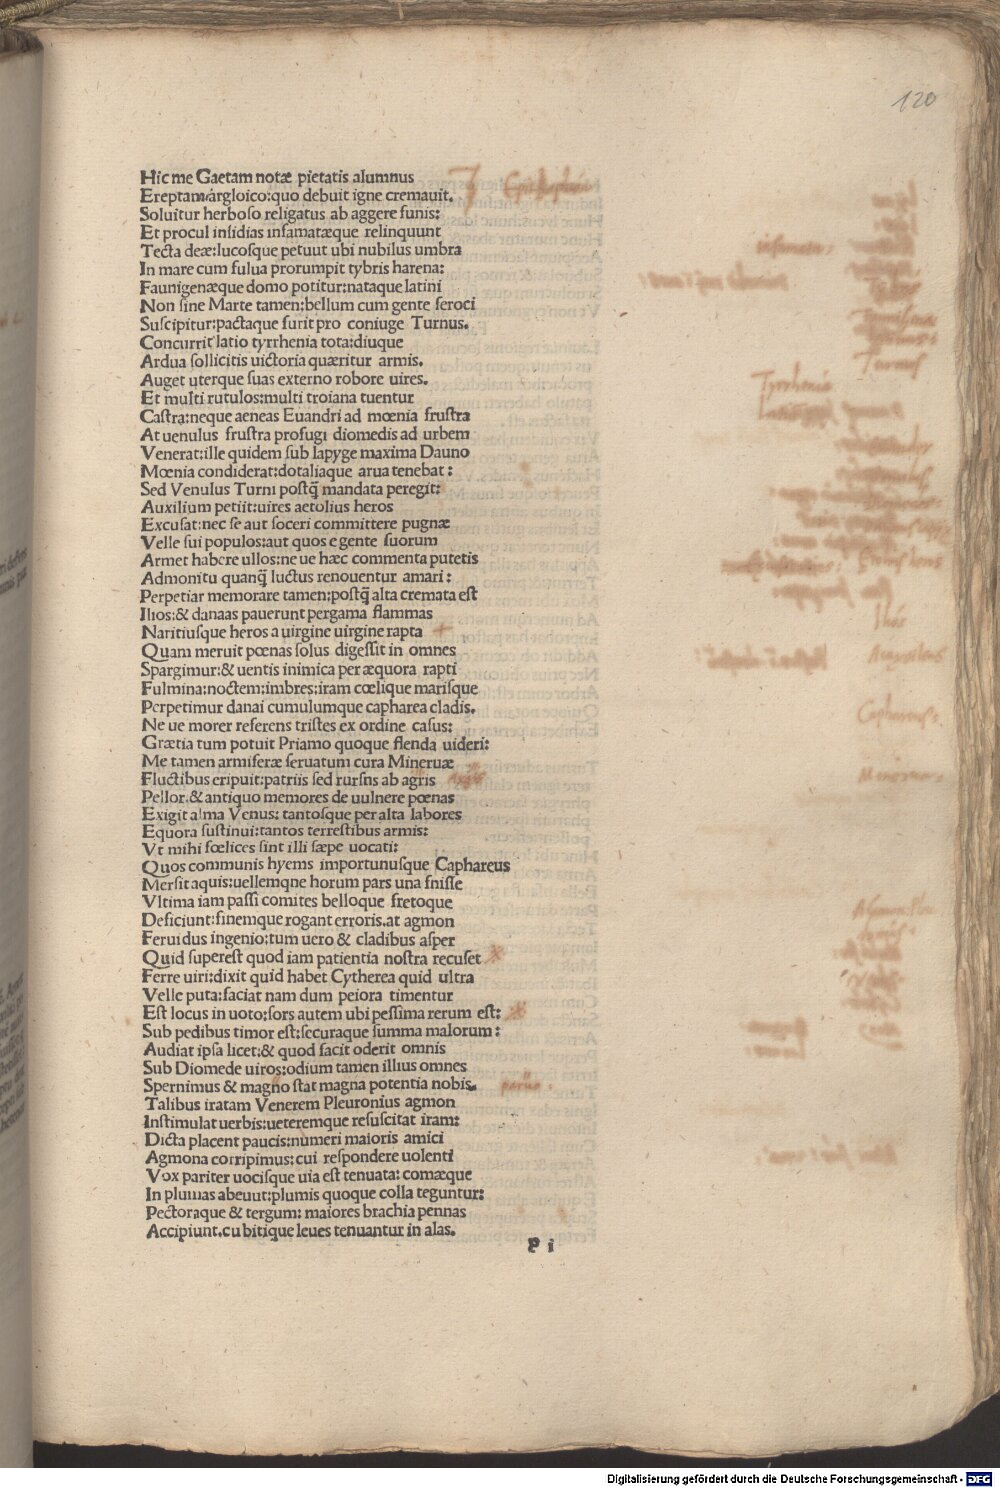 120
Hic me Gaetam notæ pietatis alumnus
Ereptam argloico:quo debuit igne cremauit.
Soluitur herboſo religatus ab aggere funis:
Et procul inſidias infamatæque relinquunt
Tecta deæ:lucoſque petuut ubi nubilus umbra
In mare cum fulua prorumpit tybris harena:
Faunigenæque domo potitur:nataque latini
Non ſine Marte tamen:bellum cum gente feroci
Suſcipitur:pactaque furit pro coniuge Turnus.
Concurrit latio tyrrhenia tota:diuque
Ardua ſollicitis uictoria quæritur armis.
Auget uterque ſuas externo robore uires.
Et multi rutulos:multi troiana tuentur
Caſtra:neque aeneas Euandri ad mœnia fruſtra
At uenulus fruſtra profugi diomedis ad urbem
Venerat:ille quidem ſub Iapyge maxima Dauno
Mœnia condiderat:dotaliaque arua tenebat:
Sed Venulus Turni poſtq̃ mandata peregit:
Auxilium petiit:uires aetolius heros
Excuſat:nec ſe aut ſoceri committere pugnæ
Velle ſui populos:aut quos e gente ſuorum
Armet habere ullos:ne ue hæc commenta putetis
Admonitu quanq̃ luctus renouentur amari:
Perpetiar memorare tamen:poſtq̃ alta cremata eſt
Ilios:& danaas pauerunt pergama flammas
Naritiuſque heros a uirgine uirgine rapta
Quam meruit pœnas ſolus digeſſit in omnes
Spargimur:& uentis inimica per æquora rapti
Fulmina:noctem:imbres:iram cœlique mariſque
Perpetimur danai cumulumque capharea cladis.
Ne ue morer referens triſtes ex ordine caſus:
Grætia tum potuit Priamo quoque flenda uideri:
Me tamen armiferæ ſeruatum cura Mineruæ
Fluctibus eripuit:patriis ſed rurſns ab agris
Pellor.& antiquo memores de uulnere pœnas
Exigit alma Venus: tantoſque per alta labores
Equora ſuſtinui:tantos terreſtibus armis:
Vt mihi fœlices ſint illi ſæpe uocati:
Quos communis hyems importunuſque Caphareus
Merſit aquis:uellemqne horum pars una fniſſe
Vltima iam paſſi comites belloque fretoque
Deficiunt:finemque rogant erroris.at agmon
Feruidus ingenio:tum uero & cladibus aſper
Quid ſupereſt quod iam patientia noſtra recuſet
Ferre uiri:dixit quid habet Cytherea quid ultra
Velle puta:faciat nam dum peiora timentur
Eſt locus in uoto:ſors autem ubi peſſima rerum eſt:
Sub pedibus timor eſt:ſecuraque ſumma malorum:
Audiat ipſa licet:& quod facit oderit omnis
Sub Diomede uiros:odium tamen illius omnes
Spernimus & magno ſtat magna potentia nobis.
Talibus iratam Venerem Pleuronius agmon
Inſtimulat uerbis:ueteremque reſuſcitat iram:
Dicta placent paucis:numeri maioris amici
Agmona corripimus:cui reſpondere uolenti
Vox pariter uociſque uia eſt tenuata: comæque
In plumas abeuut:plumis quoque colla teguntur:
Pectoraque & tergum: maiores brachia pennas
Accipiunt.cubitique leues tenuantur in alas.
P i
Digitalisierung gefördert durch die Deutsche Forschungsgemeinschaft - DFG